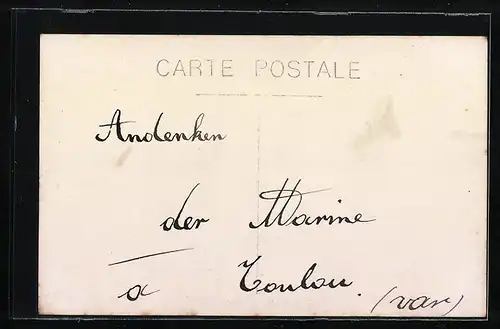 CARTE POSTALE
Andenken
der Marine
a Toulou. (var)